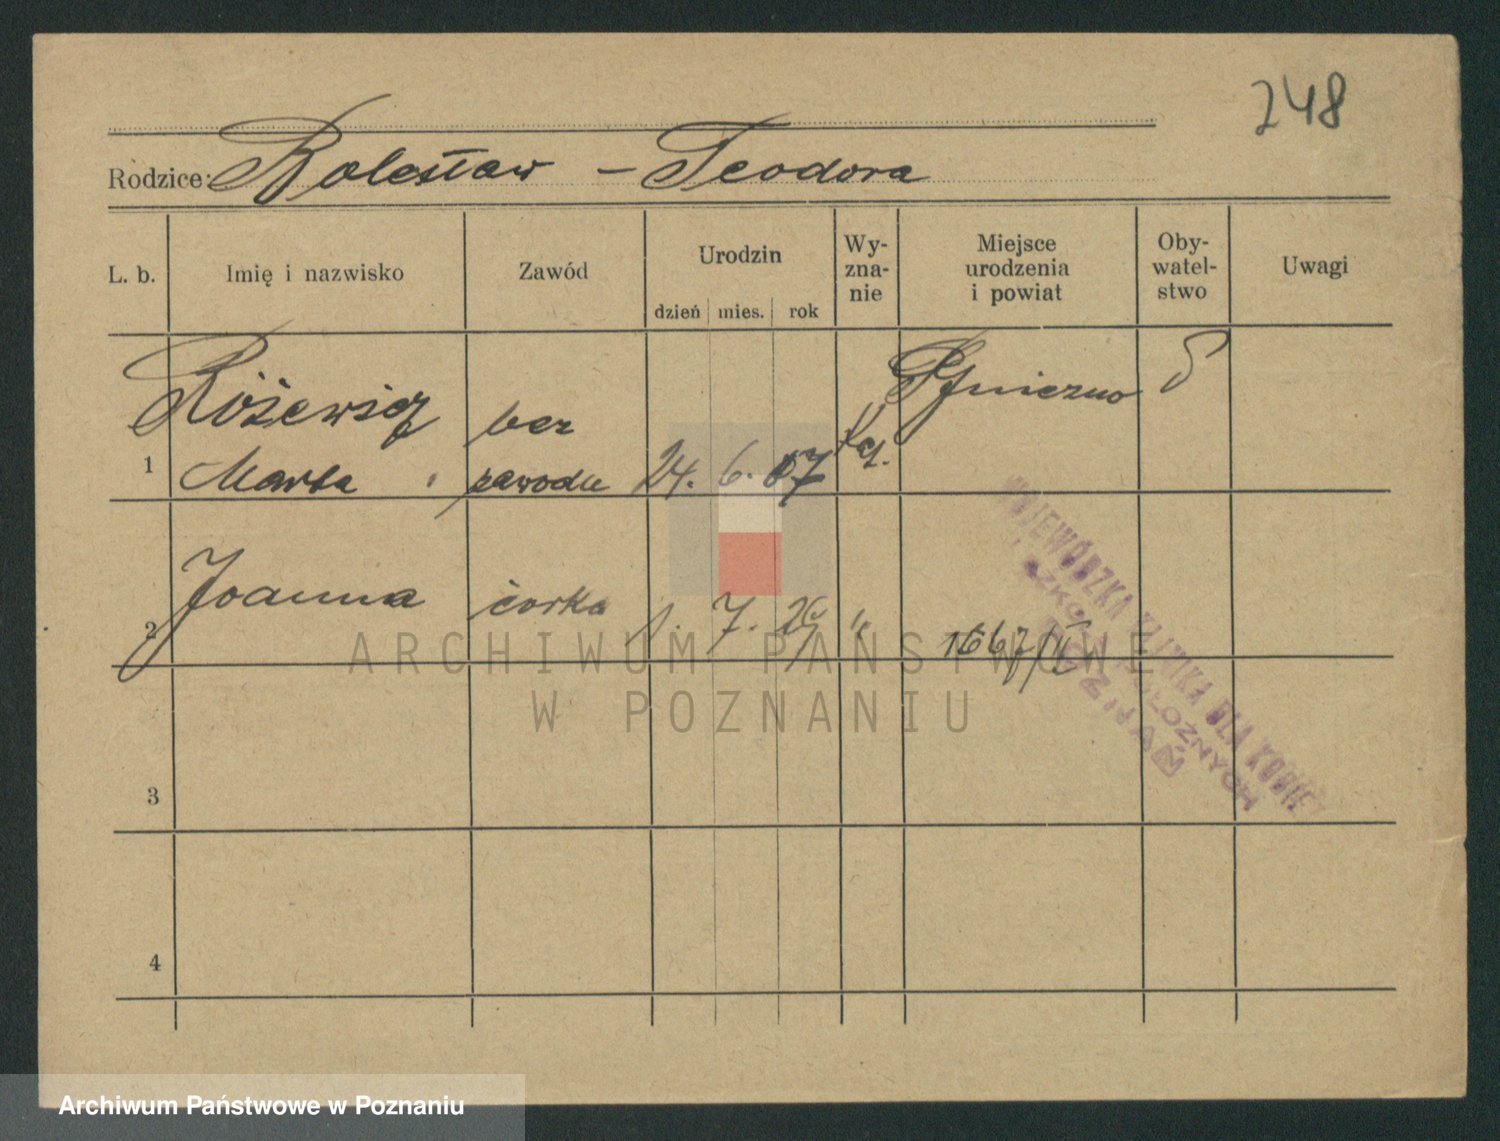 248
Rodzice: Bolesław – Teodora
L. b. Imię i nazwisko Zawód Urodzin dzień mies. rok Wy-zna-nie Miejsce urodzenia i powiat Oby-watel-stwo Uwagi
Różewicz bez Gniezno
1 Marta zawodu 24. 6. 07 kat.
2 Joanna córka 1. 7. 26 "
1667/IV
WOJEWÓDZKA KLINIKA DLA KOBIET
I SZKOŁA POŁOŻNYCH
POZNAŃ
3
4
ARCHIWUM PAŃSTWOWE
W POZNANIU
Archiwum Państwowe w Poznaniu